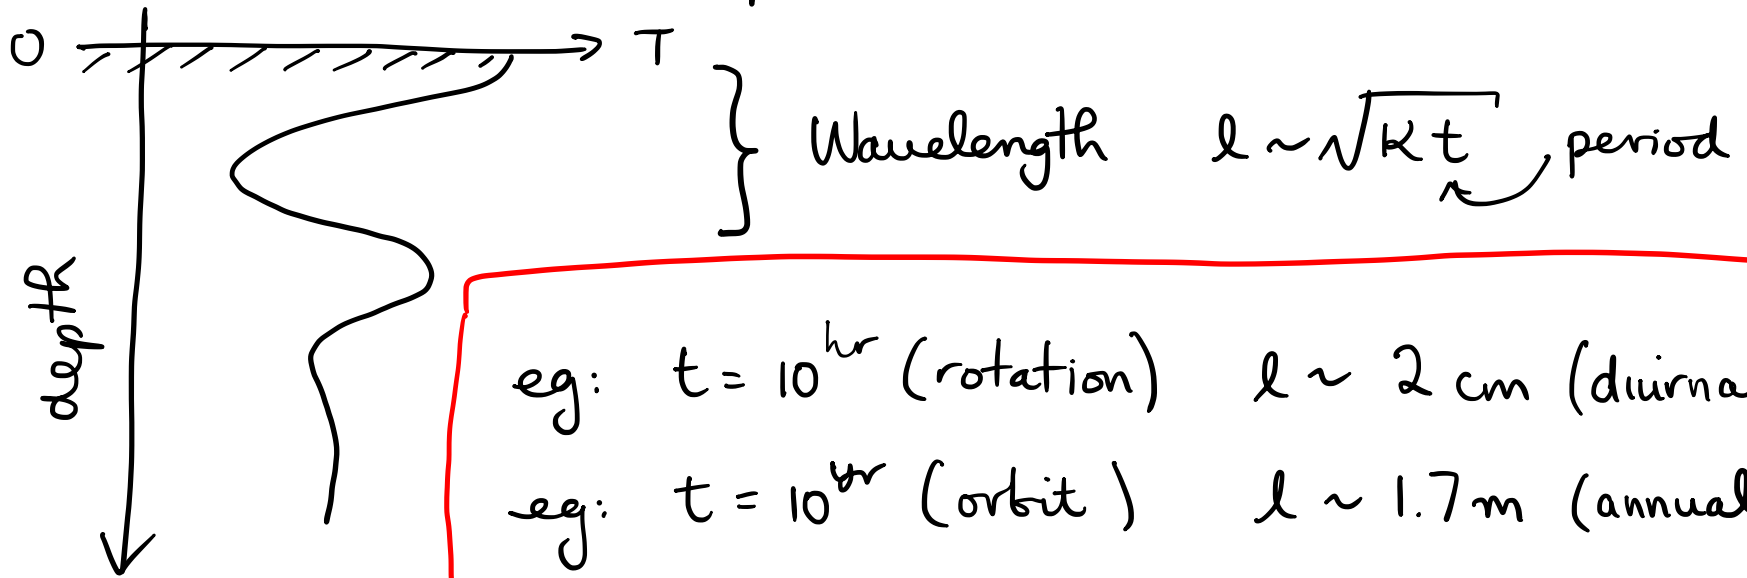 0 T
Wavelength l ~ √κt period
depth
eg: t = 10^hr (rotation) l ~ 2 cm (diurna
eg: t = 10^yr (orbit) l ~ 1.7 m (annual